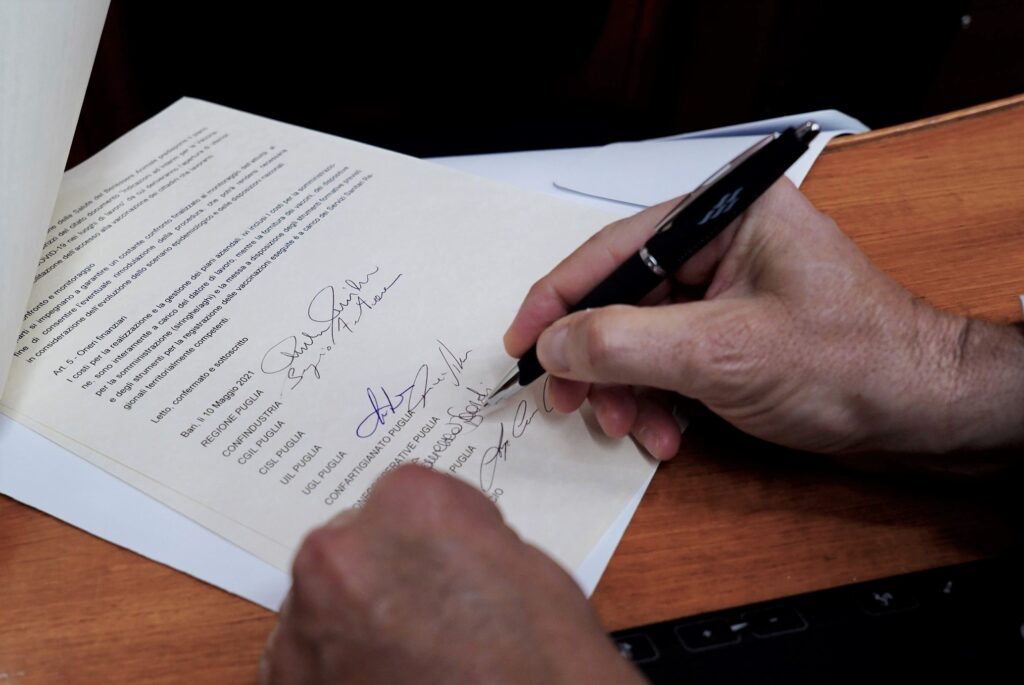 della Salute del Benessere Animale predispone il piano
del citato documento "Indicazioni ad interim per la vaccina-
COVID-19 nei luoghi di lavoro" da cui deriveranno l'apertura di ulteriori
dell'accesso alla vaccinazione dei cittadini ma lavoranti
confronto e monitoraggio
si impegnano a garantire un costante confronto finalizzato al monitoraggio dell'attività al
fine di consentire l'eventuale rimodulazione della procedura che potrà rendersi necessaria
in considerazione dell'evoluzione dello scenario epidemiologico e delle disposizioni nazionali
Art. 5 - Oneri finanziari
I costi per la realizzazione e la gestione dei piani aziendali, ivi inclusi i costi per la somministrazio-
ne, sono interamente a carico del datore di lavoro, mentre la fornitura dei vaccini, dei dispositivi
per la somministrazione (siringhe/aghi) e la messa a disposizione degli strumenti formativi previsti
e degli strumenti per la registrazione delle vaccinazioni eseguite è a carico dei Servizi Sanitari Re-
gionali territorialmente competenti
Letto, confermato e sottoscritto
Bari, lì 10 Maggio 2021
REGIONE PUGLIA
CONFINDUSTRIA
CGIL PUGLIA
CISL PUGLIA
UIL PUGLIA
UGL PUGLIA
CONFARTIGIANATO PUGLIA
PUGLIA
PUGLIA